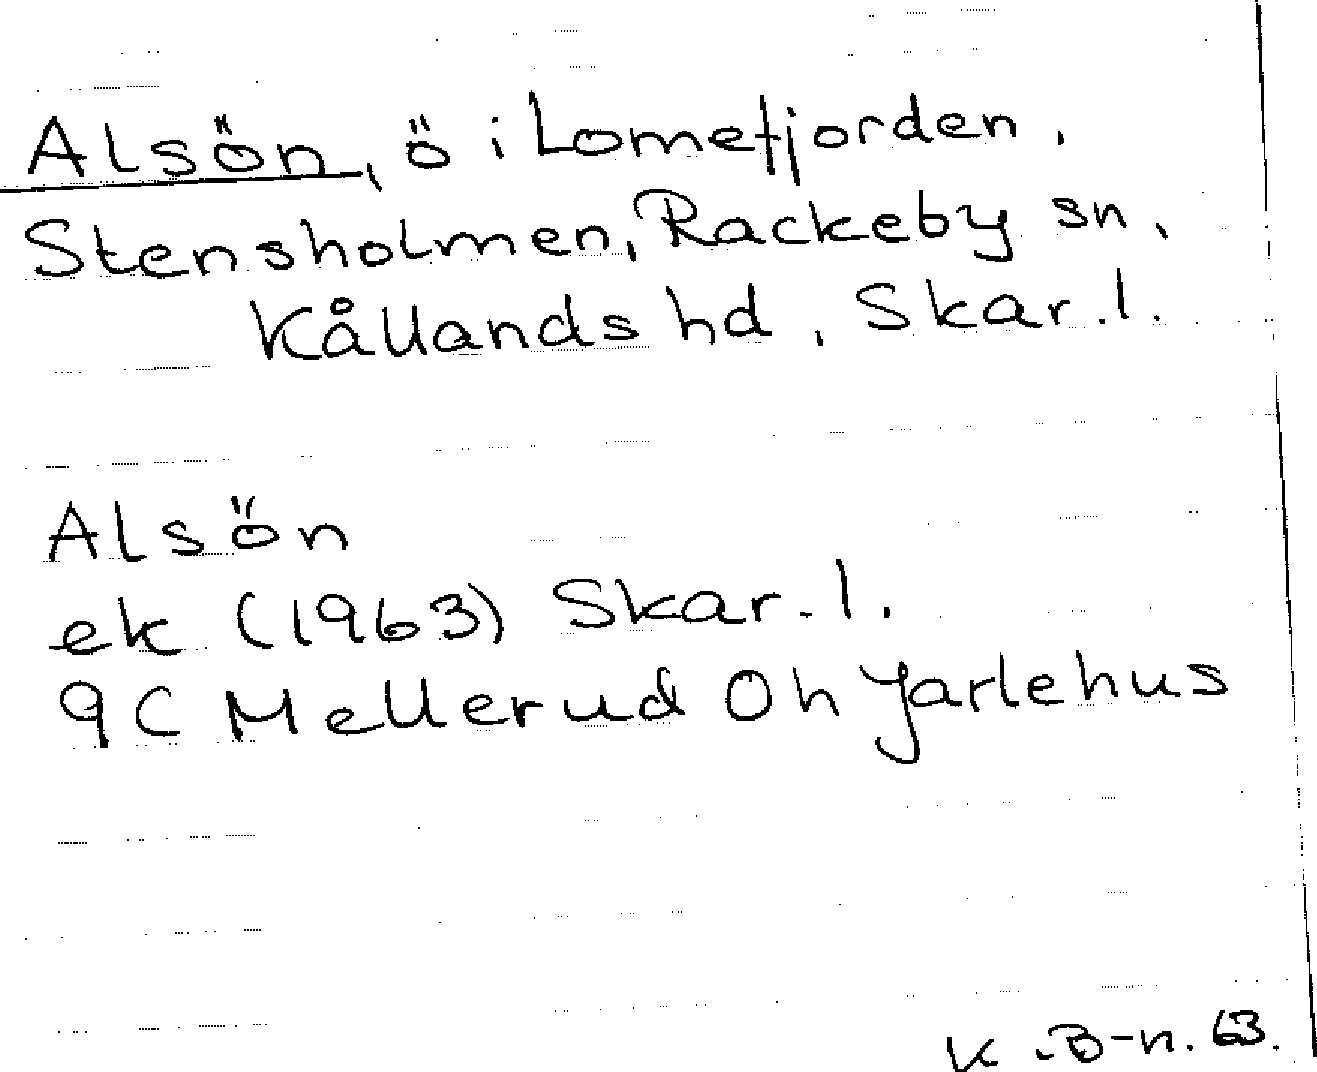 Alsön, ö i Lomefjorden,
Stensholmen, Rackeby sn,
Kållands hd, Skar. l.
Alsön
ek (1963) Skar. l.
9C Mellerud 0h Jarlehus
K.B-n. 63.